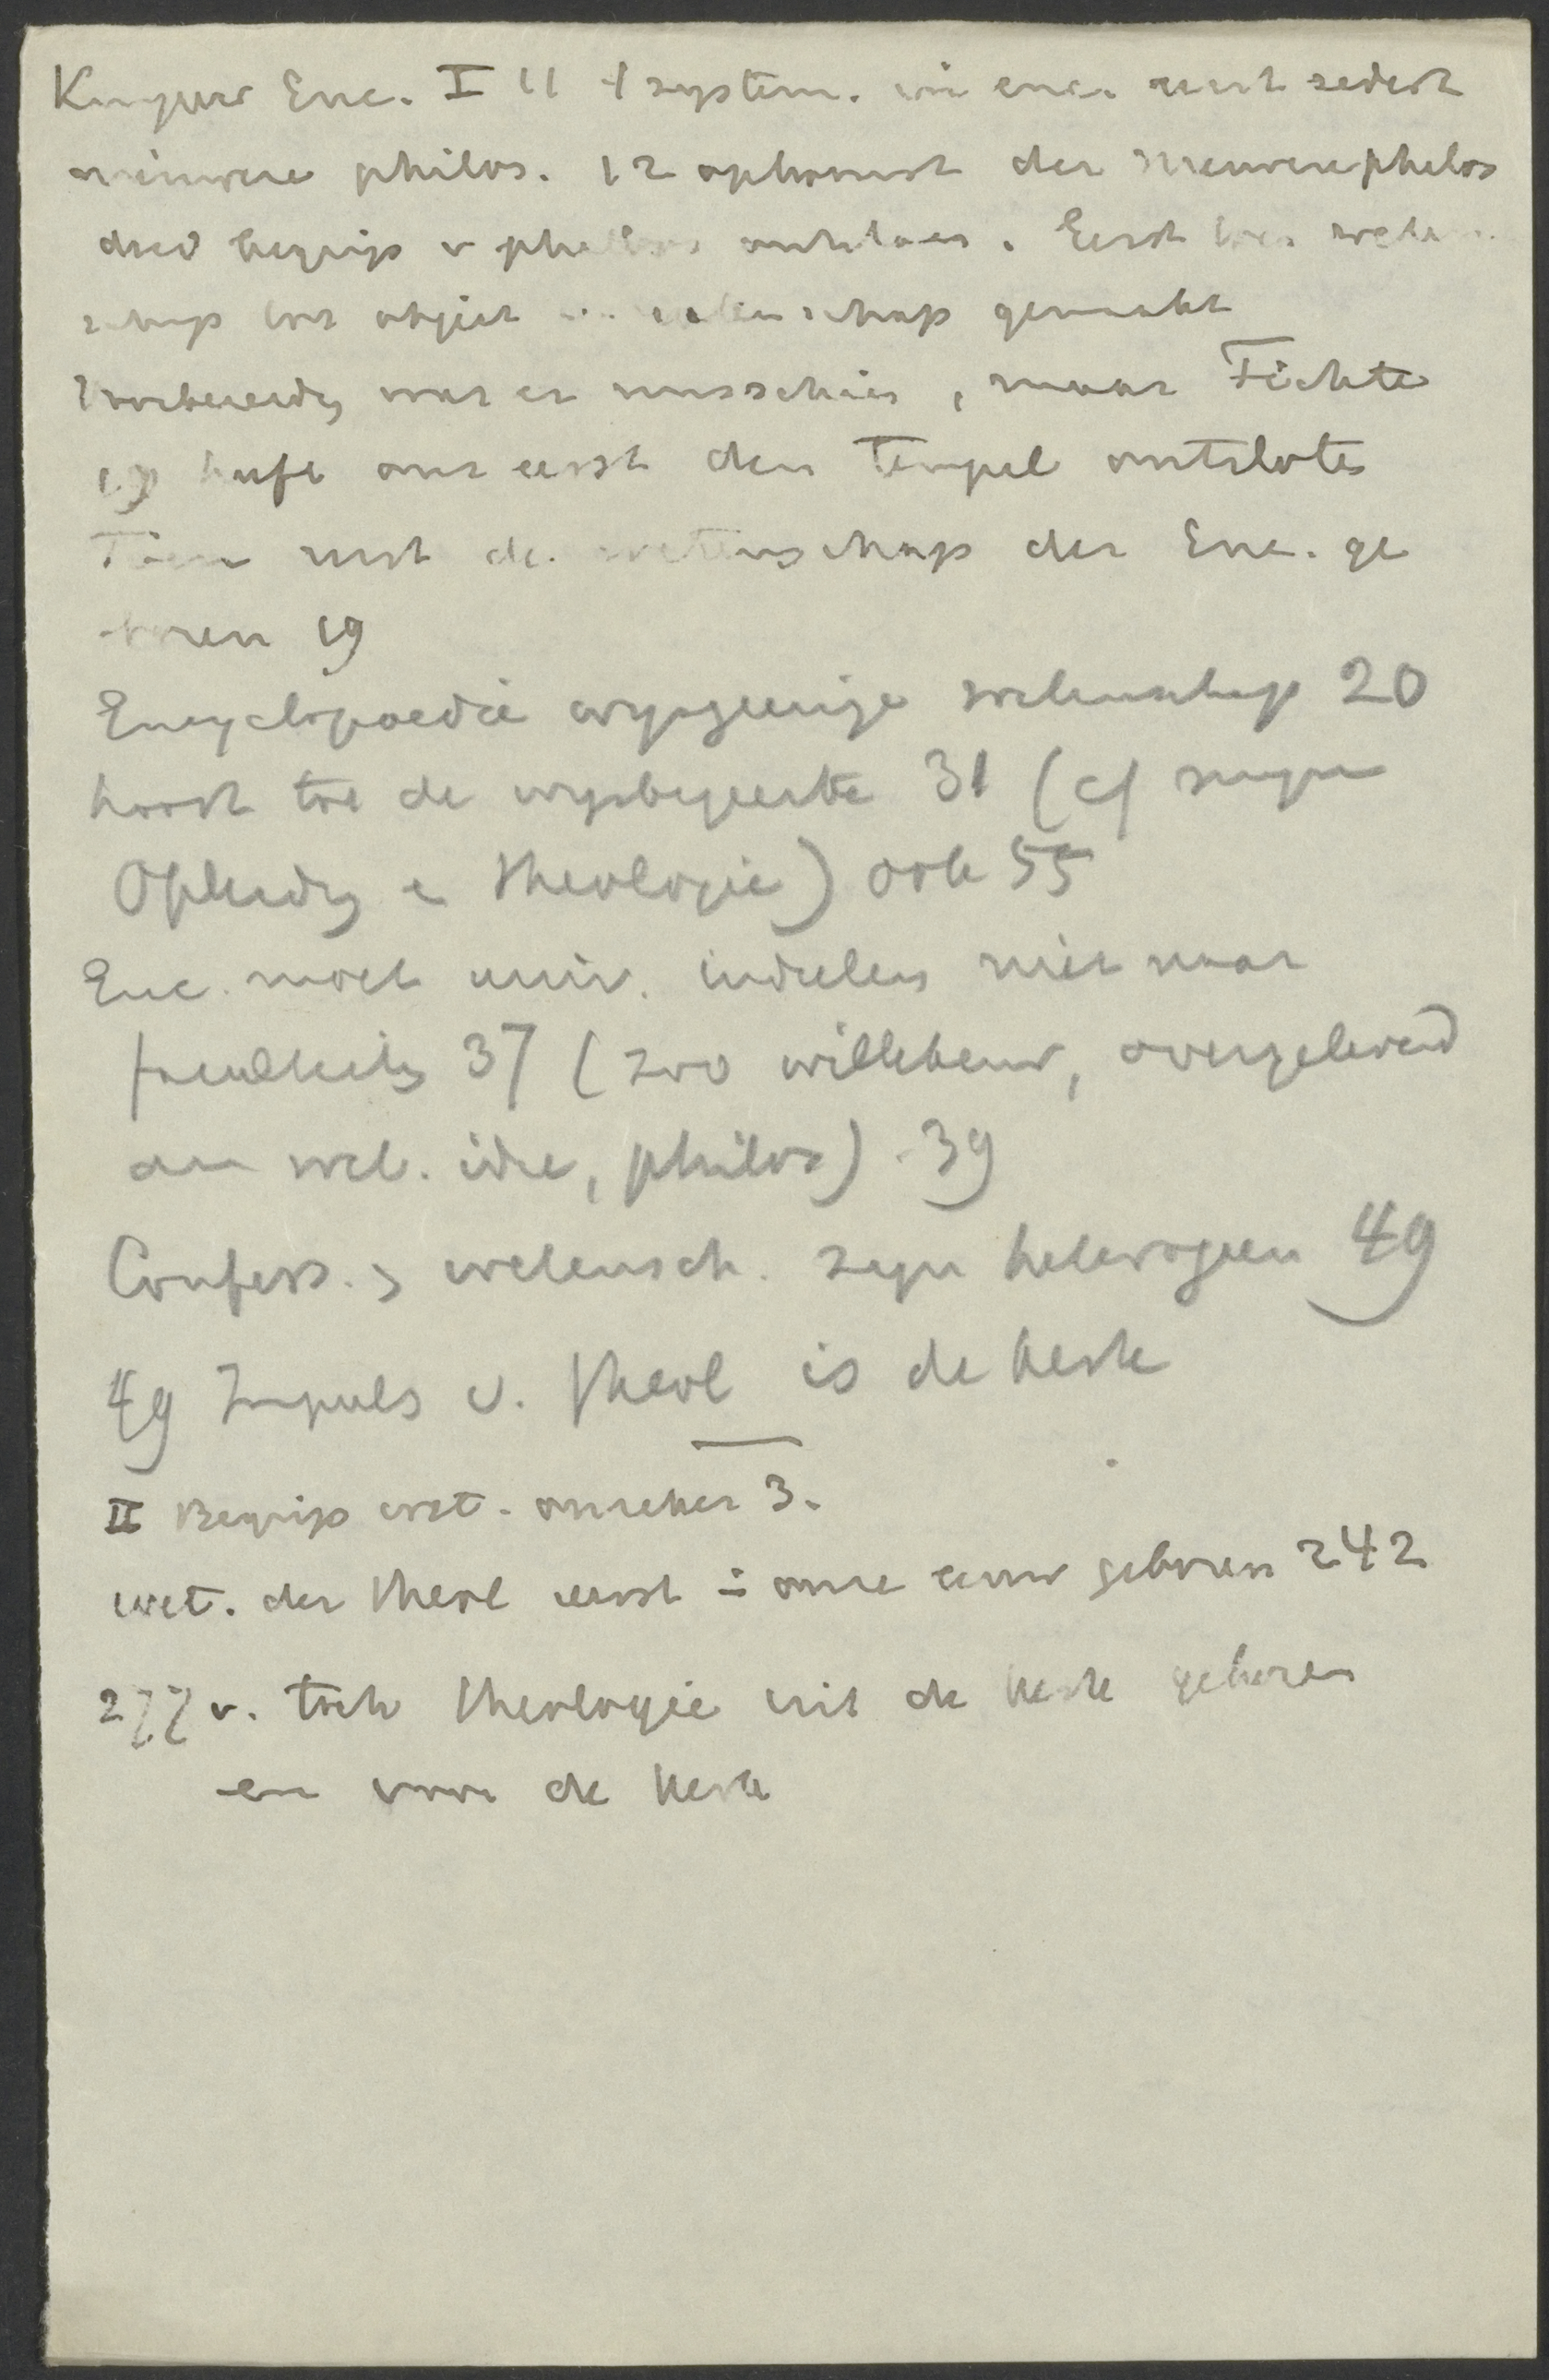 Kuyper Enc. I 11 system. enc. eerst sedert
nieuwere philos. 12 opkomst der nieuwere philos
deed begrip v philos ontstaan. Eerst toen weten
schap tot object wetenschap gemaakt
Voorbereidg was er misschien, maar Fichte
19 heeft ons eerst den Tempel ontsloten
Toen eerst de wetenschap der Enc. ge
boren 19
Encyclopaedie wijsgeerige wetenschap 20
hoort tot de wijsbegeerte 31 (cf mijn
Opleidg en theologie) ook 55
Enc. moet univ. indeelen niet naar
faculteiten 37 (zoo willekeur, overgeleverd
aan wet. idee, philos) 39
Confess. en wetensch. zijn heterogeen 49
49 Impuls v. theol is de kerk
II Begrip wet. onzeker 3.
wet. der theol eerst in onze eeuw geboren 242
277 v. toch theologie uit de kerk geboren
en voor de kerk